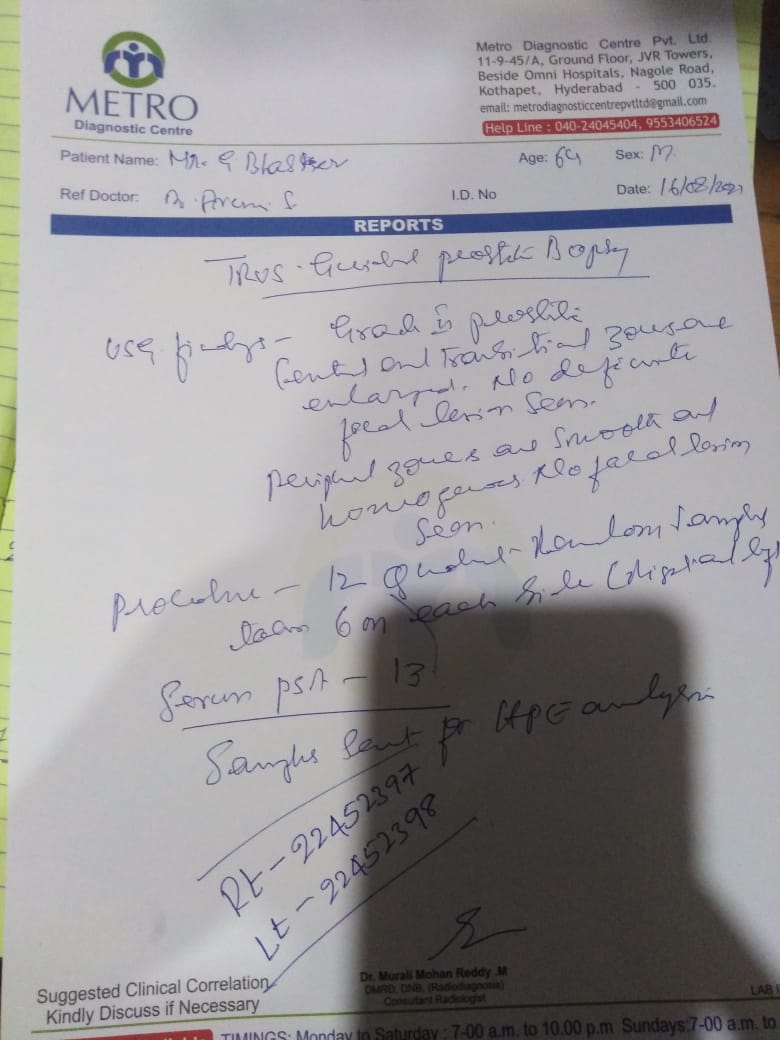 METRO
Diagnostic Centre
Metro Diagnostic Centre Pvt. Ltd.
11-9-45/A, Ground Floor, JVR Towers,
Beside Omni Hospitals, Nagole Road,
Kothapet, Hyderabad - 500 035.
email: metrodiagnosticcentrepvtltd@gmail.com
Help Line : 040-24045404, 9553406524
Patient Name: Mr. G Age: 64 Sex: M
Ref Doctor: Dr. I.D. No Date: 16/08/
REPORTS
TRUS Guided Biopsy
USG findings -
Central and Transitional Zones are
enlarged. No definite
focal lesion seen.
zones are smooth and
homogenous No focal lesion
seen.
Procedure - 12 Random Samples
taken 6 on each side
Serum PSA - 13
Samples Sent for HPE analysis
Rt - 22452397
Lt - 22452398
Suggested Clinical Correlation
Kindly Discuss if Necessary
Dr. Murali Mohan Reddy .M
DMRD, DNB, (Radiodiagnosis)
Consultant Radiologist
LAB
TIMINGS: Monday to Saturday : 7-00 a.m. to 10.00 p.m Sundays:7-00 a.m. to